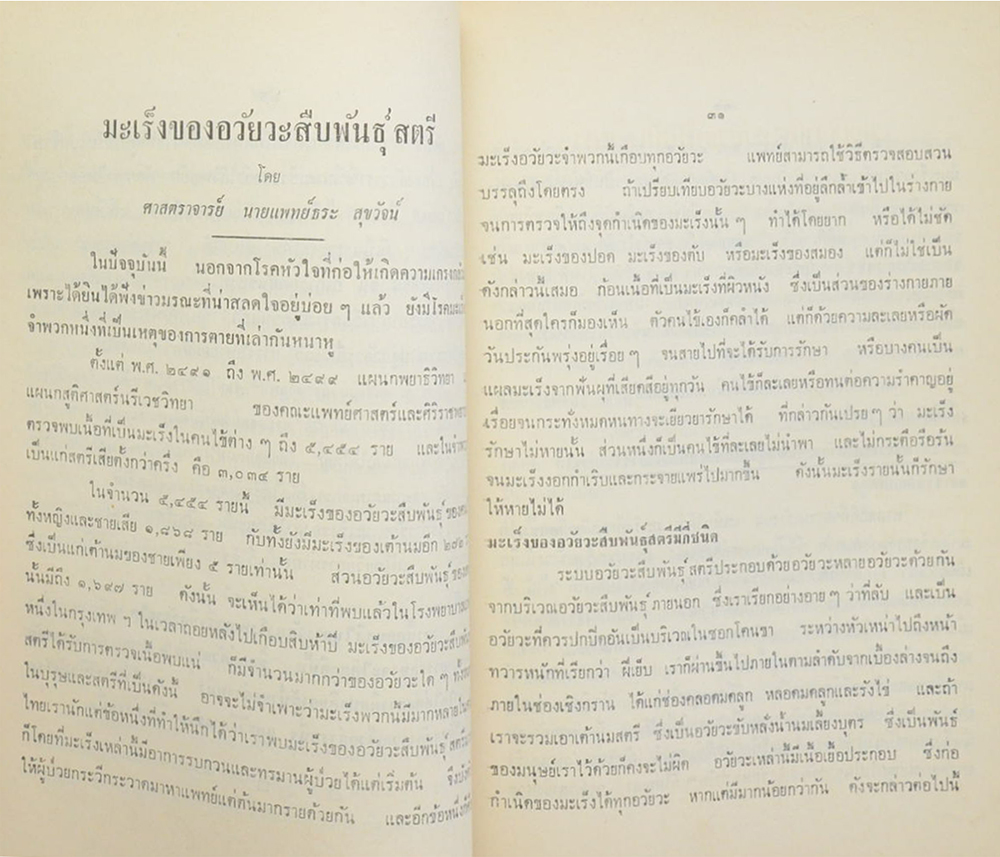 มะเร็งของอวัยวะสืบพันธุ์ สตรี
โดย
ศาสตราจารย์ นายแพทย์ธระ สุขวัจน์
ในปัจจุบันนี้ นอกจากโรคหัวใจที่ก่อให้เกิดความเกรงกลัว
เพราะได้ยินได้ฟังข่าวมรณะที่น่าสลดใจอยู่บ่อย ๆ แล้ว ยังมีโรคมะเร็ง
จำพวกหนึ่งที่เป็นเหตุของการตายที่เล่ากันหนาหู
ตั้งแต่ พ.ศ. ๒๔๙๑ ถึง พ.ศ. ๒๔๙๙ แผนกพยาธิวิทยา
แผนกสูติศาสตร์นรีเวชวิทยา ของคณะแพทย์ศาสตร์และศิริราชพยาบาล
ตรวจพบเนื้อที่เป็นมะเร็งในคนไข้ต่าง ๆ ถึง ๕,๔๕๔ ราย และใน
เป็นแก่สตรีเสียตั้งกว่าครึ่ง คือ ๓,๐๓๔ ราย
ในจำนวน ๕,๔๕๔ รายนี้ มีมะเร็งของอวัยวะสืบพันธุ์
ทั้งหญิงและชายเสีย ๑,๘๖๘ ราย กับทั้งยังมีมะเร็งของเต้านมอีก
ซึ่งเป็นแก่เต้านมของชายเพียง ๕ รายเท่านั้น ส่วนอวัยวะสืบพันธุ์
นั้นมีถึง ๑,๖๙๗ ราย ดังนั้น จะเห็นได้ว่าเท่าที่พบแล้วในโรงพยาบาล
หนึ่งในกรุงเทพ ฯ ในเวลาถอยหลังไปเกือบสิบห้าปี มะเร็งของอวัยวะสืบพันธุ์
สตรีได้รับการตรวจเนื้อพบแน่ ก็มีจำนวนมากกว่าของอวัยวะใด ๆ
ในบุรุษและสตรีที่เป็นดังนี้ อาจจะไม่จำเพาะว่ามะเร็งพวกนี้มีมากหลาย
ไทยเรานักแต่ข้อหนึ่งที่ทำให้นึกได้ว่าเราพบมะเร็งของอวัยวะสืบพันธุ์สตรี
ก็โดยที่มะเร็งเหล่านี้มีอาการรบกวนและทรมานผู้ป่วยได้แต่เริ่มต้น
ให้ผู้ป่วยกระวีกระวาดมาหาแพทย์แต่ต้นมากรายด้วยกัน และอีกข้อหนึ่ง
๓๑
มะเร็งอวัยวะจำพวกนี้เกือบทุกอวัยวะ แพทย์สามารถใช้วิธีตรวจสอบสวน
บรรลุถึงโดยตรง ถ้าเปรียบเทียบอวัยวะบางแห่งที่อยู่ลึกล้ำเข้าไปในร่างกาย
จนการตรวจให้ถึงจุดกำเนิดของมะเร็งนั้น ๆ ทำได้โดยยาก หรือได้ไม่ชัด
เช่น มะเร็งของปอด มะเร็งของตับ หรือมะเร็งของสมอง แต่ก็ไม่ใช่เป็น
ดังกล่าวนี้เสมอ ก้อนเนื้อที่เป็นมะเร็งที่ผิวหนัง ซึ่งเป็นส่วนของร่างกายภาย
นอกที่สุดใครก็มองเห็น ตัวคนไข้เองก็คลำได้ แต่ก็ด้วยความละเลยหรือผัด
วันประกันพรุ่งอยู่เรื่อย ๆ จนสายไปที่จะได้รับการรักษา หรือบางคนเป็น
แผลมะเร็งจากฟันผุที่เสียดสีอยู่ทุกวัน คนไข้ก็ละเลยหรือทนต่อความรำคาญอยู่
เรื่อยจนกระทั่งหมดหนทางจะเยียวยารักษาได้ ที่กล่าวกันเปรย ๆ ว่า มะเร็ง
รักษาไม่หายนั้น ส่วนหนึ่งก็เป็นคนไข้ที่ละเลยไม่นำพา และไม่กระตือรือร้น
จนมะเร็งงอกกำเริบและกระจายแพร่ไปมากขึ้น ดังนั้นมะเร็งรายนั้นก็รักษา
ให้หายไม่ได้
มะเร็งของอวัยวะสืบพันธุ์สตรีมีกี่ชนิด
ระบบอวัยวะสืบพันธุ์ สตรีประกอบด้วยอวัยวะหลายอวัยวะด้วยกัน
จากบริเวณอวัยวะสืบพันธุ์ ภายนอก ซึ่งเราเรียกอย่างอาย ๆ ว่าที่ลับ และเป็น
อวัยวะที่ควรปกปิดอันเป็นบริเวณในซอกโคนขา ระหว่างหัวเหน่าไปถึงหน้า
ทวารหนักที่เรียกว่า ฝีเย็บ เราก็ผ่านขึ้นไปภายในตามลำดับจากเบื้องล่างจนถึง
ภายในช่องเชิงกราน ได้แก่ช่องคลอดมดลูก หลอดมดลูกและรังไข่ และถ้า
เราจะรวมเอาเต้านมสตรี ซึ่งเป็นอวัยวะขับหลั่งน้ำนมเลี้ยงบุตร ซึ่งเป็นพันธุ์
ของมนุษย์เราไว้ด้วยก็คงจะไม่ผิด อวัยวะเหล่านี้มีเนื้อเยื่อประกอบ ซึ่งก่อ
กำเนิดของมะเร็งได้ทุกอวัยวะ หากแต่มีมากน้อยกว่ากัน ดังจะกล่าวต่อไปนี้